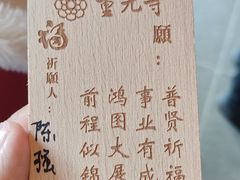 寺
願：
普贤祈福
事业有成
鸿图大展
前程似锦
福
祈願人：
陈